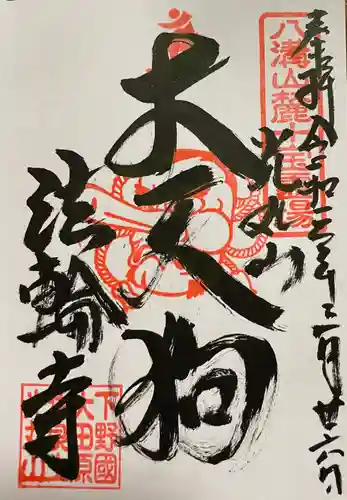 奉拝 令和三年 月廿六日
八溝山麓十宝霊場
光丸山
大天狗
法輪寺
下野國
大田原